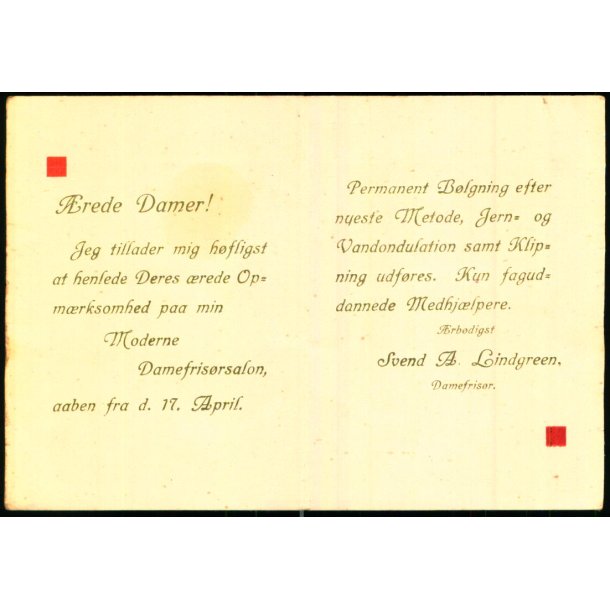 Ærede Damer!
Jeg tillader mig høfligst
at henlede Deres ærede Op=
mærksomhed paa min
Moderne
Damefrisørsalon,
aaben fra d. 17. April.
Permanent Bølgning efter
nyeste Metode, Jern= og
Vandondulation samt Klip=
ning udføres. Kyn fagud=
dannede Medhjælpere.
Ærbødigst
Svend A. Lindgreen,
Damefrisør.